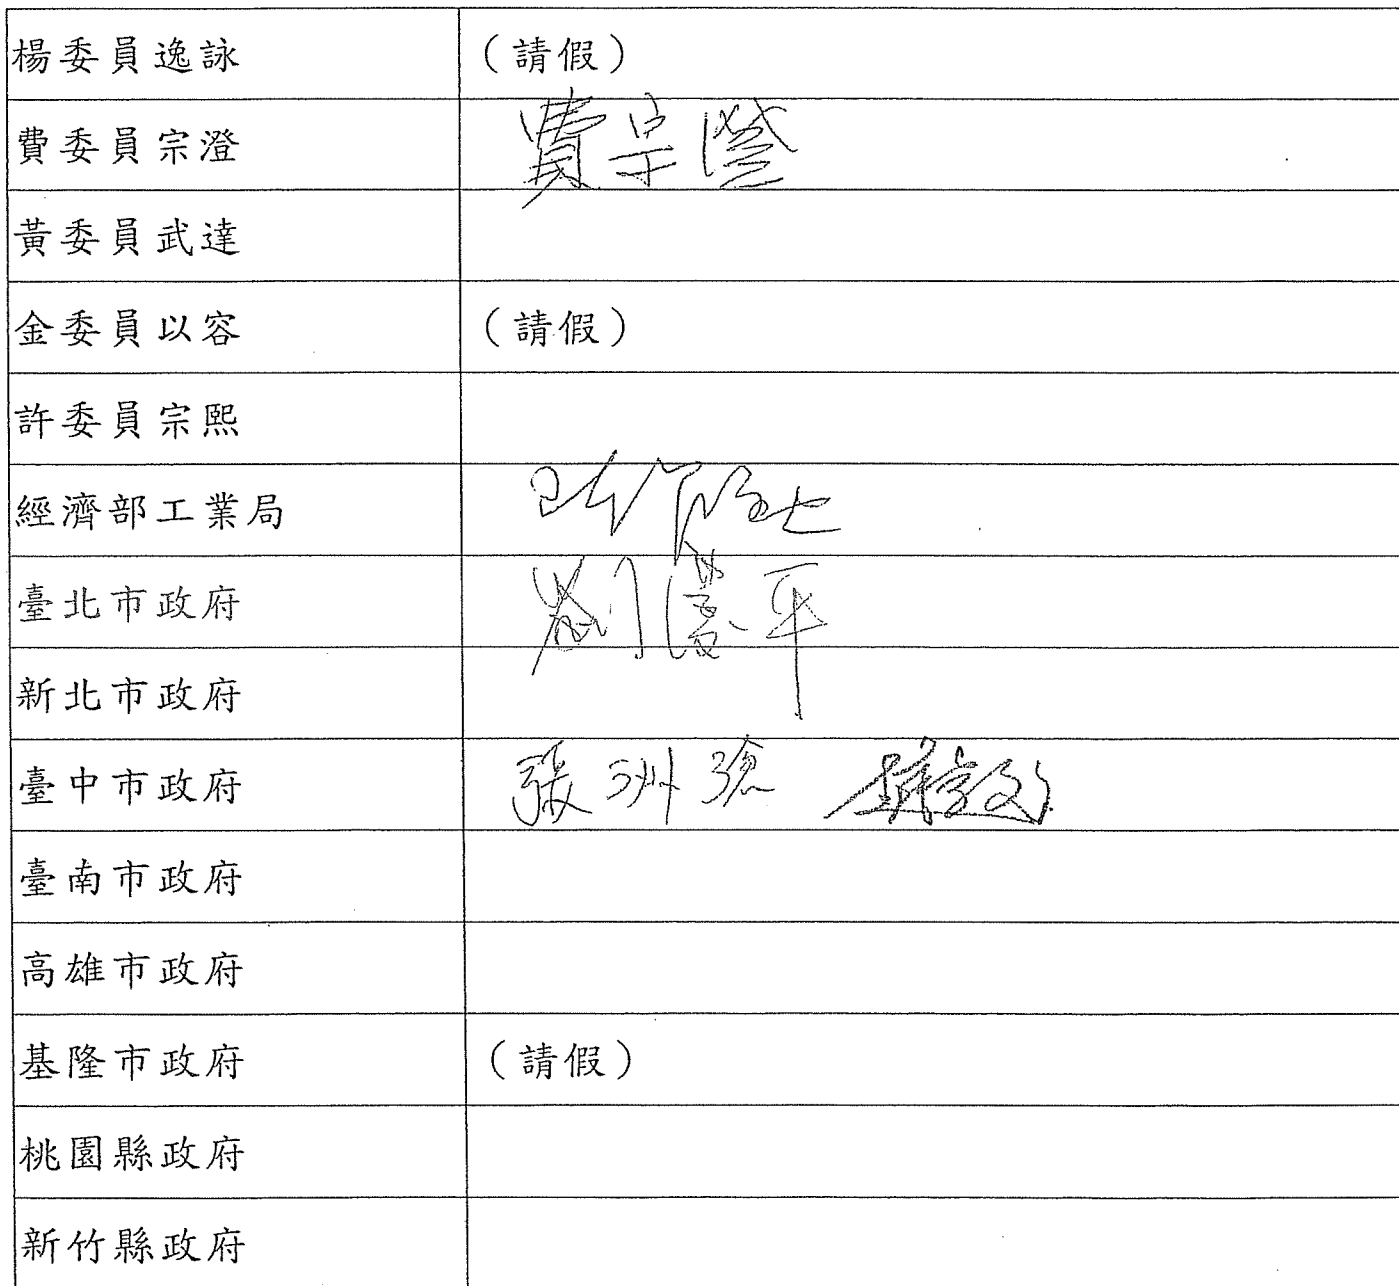 楊委員逸詠 （請假）
費委員宗澄 費宗澄
黃委員武達
金委員以容 （請假）
許委員宗熙
經濟部工業局
臺北市政府
新北市政府
臺中市政府 張洲滄
臺南市政府
高雄市政府
基隆市政府 （請假）
桃園縣政府
新竹縣政府